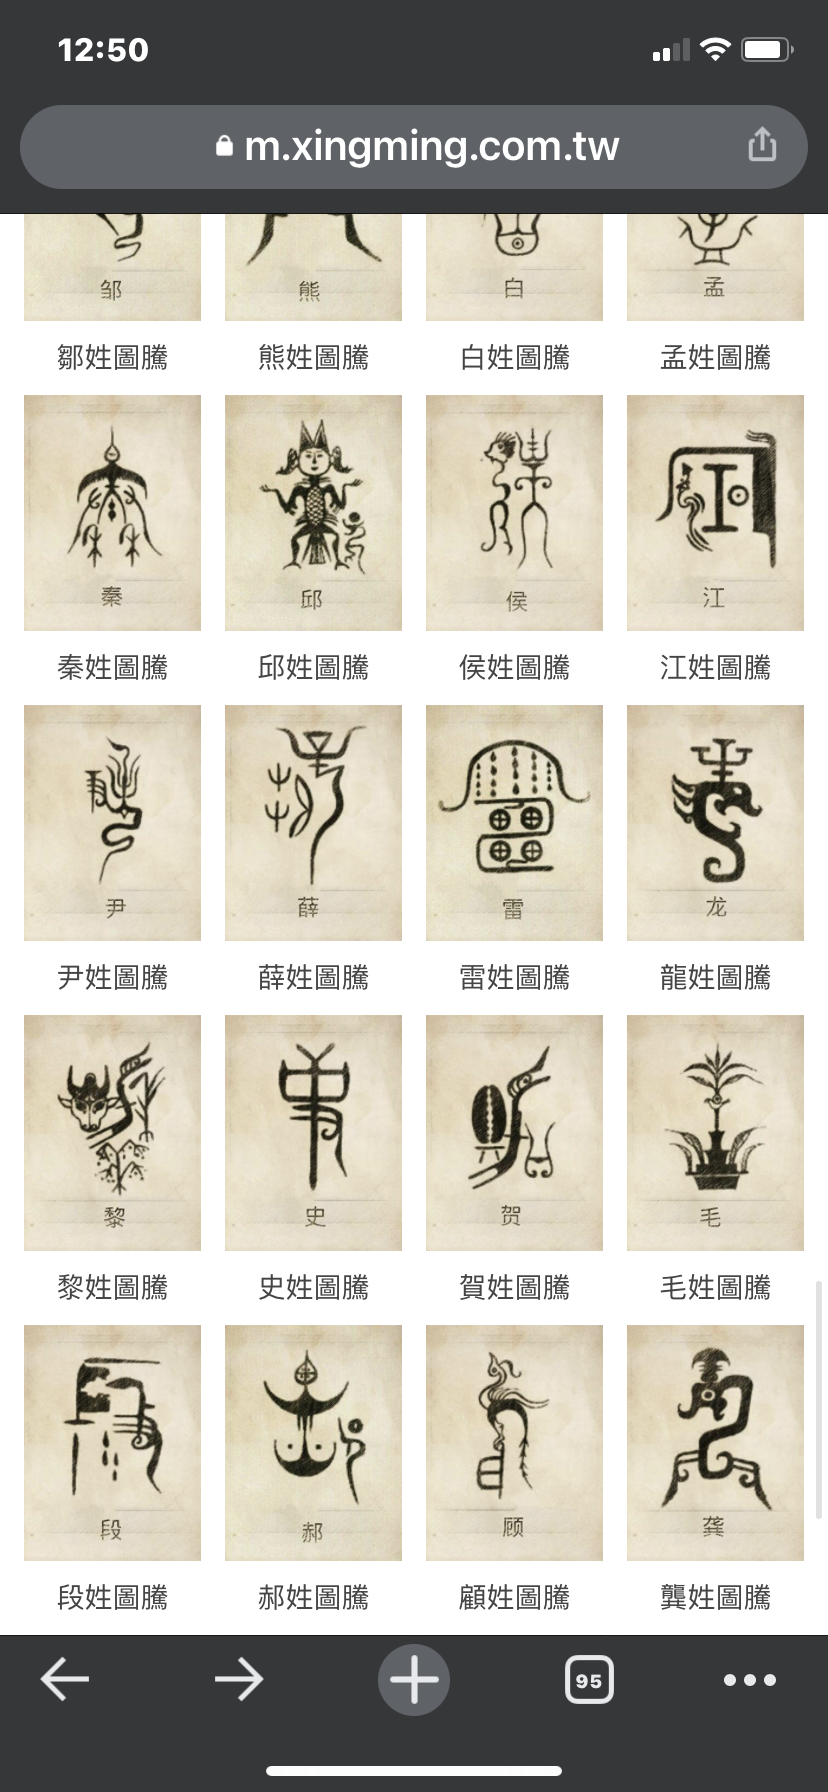 12:50
m.xingming.com.tw
邹 熊 白 孟
鄒姓圖騰 熊姓圖騰 白姓圖騰 孟姓圖騰
秦 邱 侯 江
秦姓圖騰 邱姓圖騰 侯姓圖騰 江姓圖騰
尹 薛 雷 龙
尹姓圖騰 薛姓圖騰 雷姓圖騰 龍姓圖騰
黎 史 贺 毛
黎姓圖騰 史姓圖騰 賀姓圖騰 毛姓圖騰
段 郝 顾 龚
段姓圖騰 郝姓圖騰 顧姓圖騰 龔姓圖騰
95